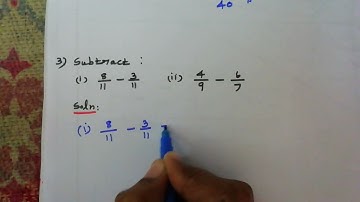 40
3) Subtract :
(i) 8/11 - 3/11 (ii) 4/9 - 6/7
Soln:
(i) 8/11 - 3/11 =